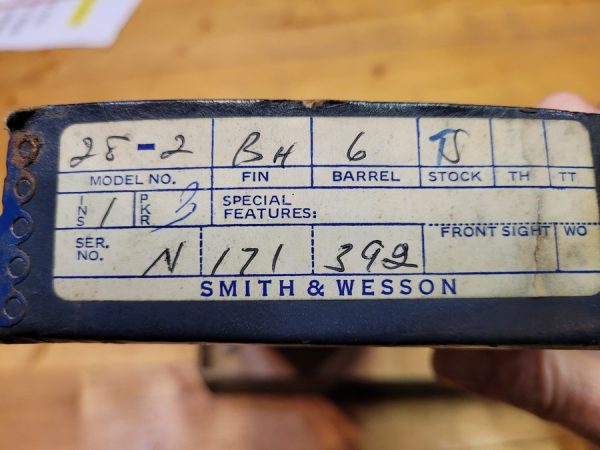 28-2 BH 6 TS
MODEL NO. FIN BARREL STOCK TH TT
INS 1 PKR 3 SPECIAL FEATURES:
FRONT SIGHT WO
SER. NO. N 171 392
SMITH & WESSON